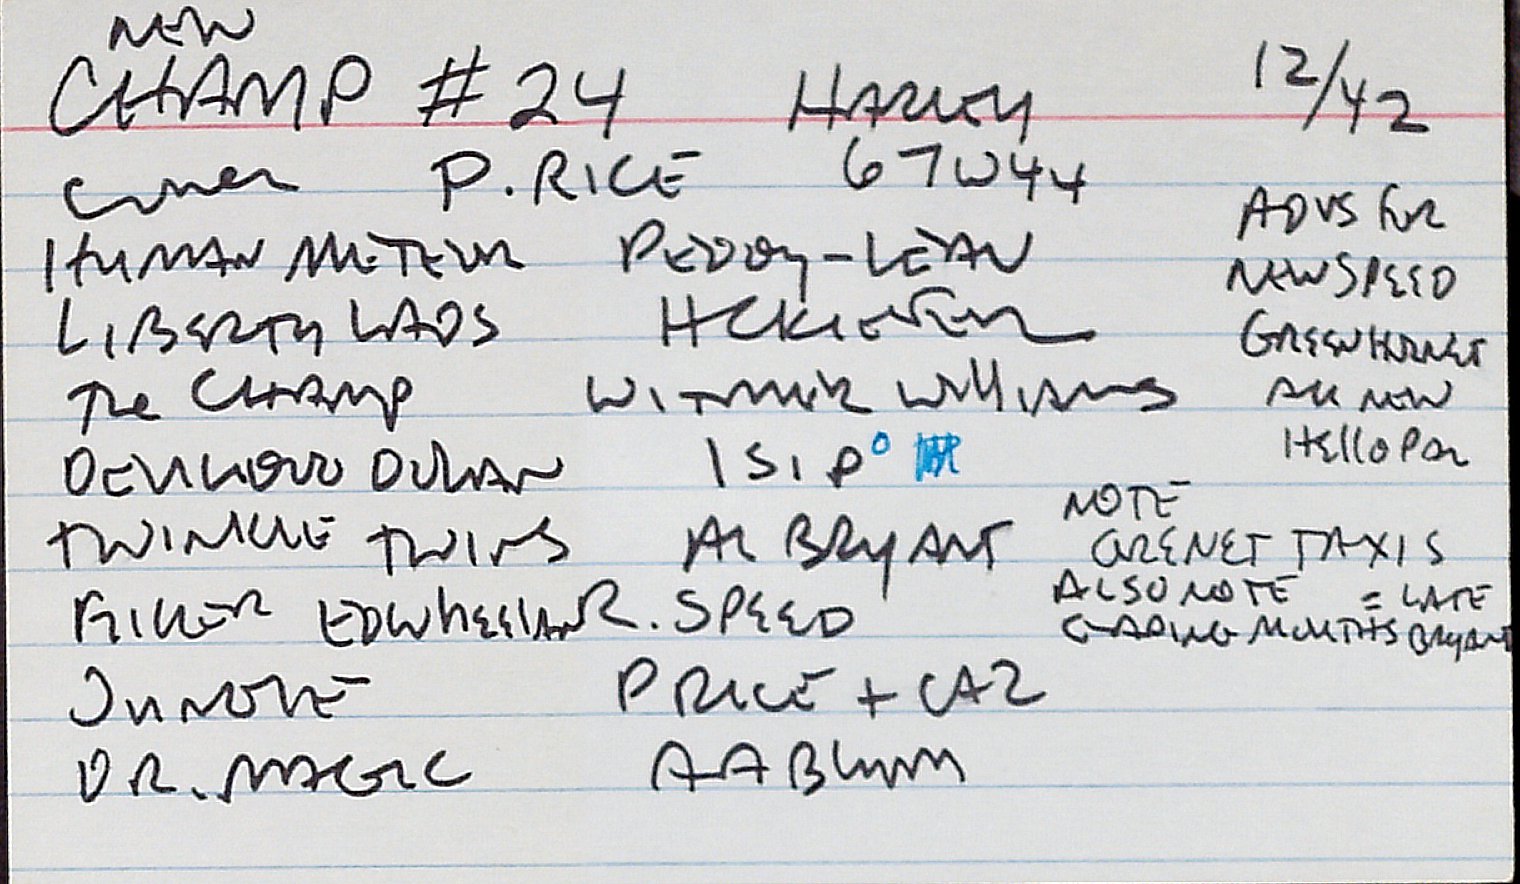 NEW
CHAMP #24 HARVEY 12/42
COVER P. RICE 67W44
HUMAN METEOR PEDDY-LEAV
LIBERTY LADS HCKIEFER
THE CHAMP WITMER WILLIAMS
DEVILHOUND DUHAN ISIP
TWINKLE TWINS AL BRYANT
FILLER ED WHEELAN R. SPEED
JUNGLE P RICE + CAZ
DR. MAGIC AA BLUM
ADVS FOR
NEW SPEED
GREEN HORNET
ALL NEW
HELLO PAL
NOTE
GRENET TAXIS
ALSO NOTE = LATE
MONTHS BRYANT